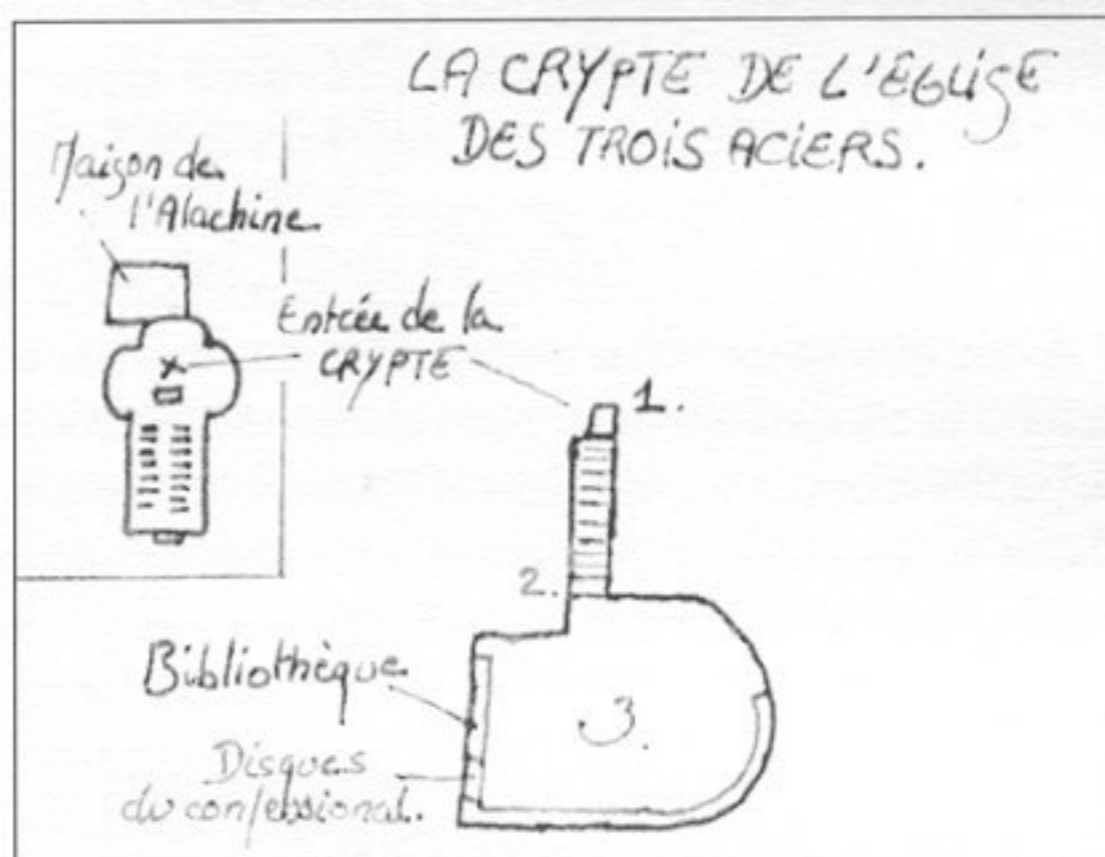 LA CRYPTE DE L'EGLISE
DES TROIS ACIERS.
Maison de
l'Alachine
Entrée de la
CRYPTE
1.
2.
Bibliothèque
3.
Disques
du confessional.